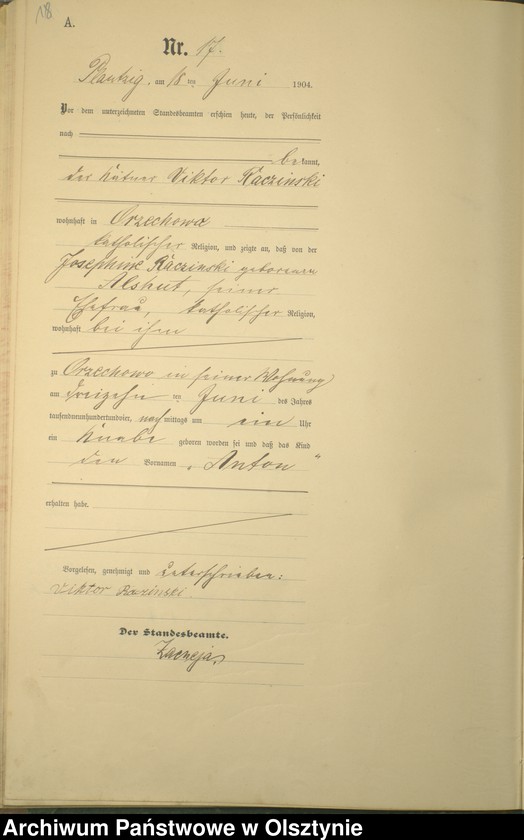 18
A.
Nr. 17.
Plautzig. am 18ten Juni 1904.
Vor dem unterzeichneten Standesbeamten erschien heute, der Persönlichkeit
nach
bekannt,
der Kätner Viktor Raczinski
wohnhaft in Orzechowo
katholischer Religion, und zeigte an, daß von der
Josephine Raczinski geborenen
Alshut, seiner
Ehefrau, katholischer Religion,
wohnhaft bei ihm
zu Orzechowo in seiner Wohnung
am dreizehnten Juni des Jahres
tausendneunhundertundvier, nachmittags um ein Uhr
ein Knabe geboren worden sei und daß das Kind
den Vornamen „Anton“
erhalten habe.
Vorgelesen, genehmigt und unterschrieben:
Viktor Raczinski.
Der Standesbeamte.
Archiwum Państwowe w Olsztynie